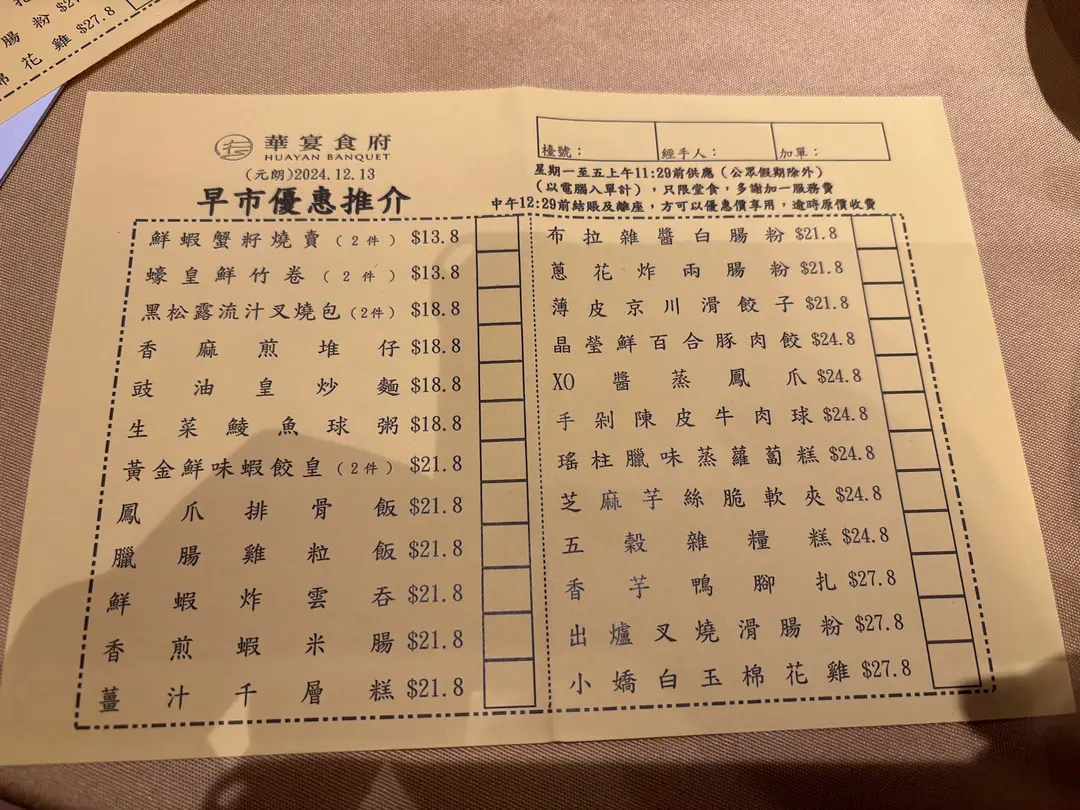 腸粉 $27.8
棉花雞 $27.8
華宴食府
HUAYAN BANQUET
(元朗)2024.12.13
早市優惠推介
檯號： 經手人： 加單：
星期一至五上午11:29前供應（公眾假期除外）
（以電腦入單計），只限堂食，多謝加一服務費
中午12:29前結賬及離座，方可以優惠價享用，逾時原價收費
鮮蝦蟹籽燒賣（2件） $13.8
蠔皇鮮竹卷（2件） $13.8
黑松露流汁叉燒包(2件) $18.8
香麻煎堆仔 $18.8
豉油皇炒麵 $18.8
生菜鯪魚球粥 $18.8
黃金鮮味蝦餃皇（2件） $21.8
鳳爪排骨飯 $21.8
臘腸雞粒飯 $21.8
鮮蝦炸雲吞 $21.8
香煎蝦米腸 $21.8
薑汁千層糕 $21.8
布拉雜醬白腸粉 $21.8
蔥花炸兩腸粉 $21.8
薄皮京川滑餃子 $21.8
晶瑩鮮百合豚肉餃 $24.8
XO醬蒸鳳爪 $24.8
手剁陳皮牛肉球 $24.8
瑤柱臘味蒸蘿蔔糕 $24.8
芝麻芋絲脆軟夾 $24.8
五穀雜糧糕 $24.8
香芋鴨腳扎 $27.8
出爐叉燒滑腸粉 $27.8
小嬌白玉棉花雞 $27.8